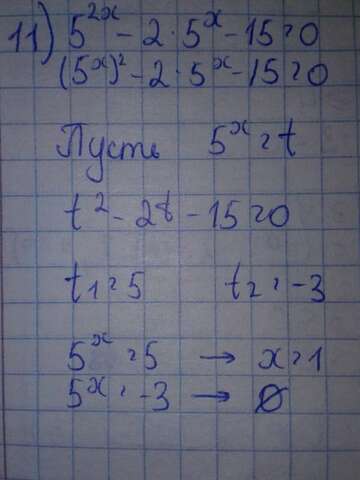 11) 5^{2x} - 2 · 5^x - 15 = 0
(5^x)² - 2 · 5^x - 15 = 0
Пусть 5^x = t
t² - 2t - 15 = 0
t₁ = 5 t₂ = -3
5^x = 5 → x = 1
5^x = -3 → ∅